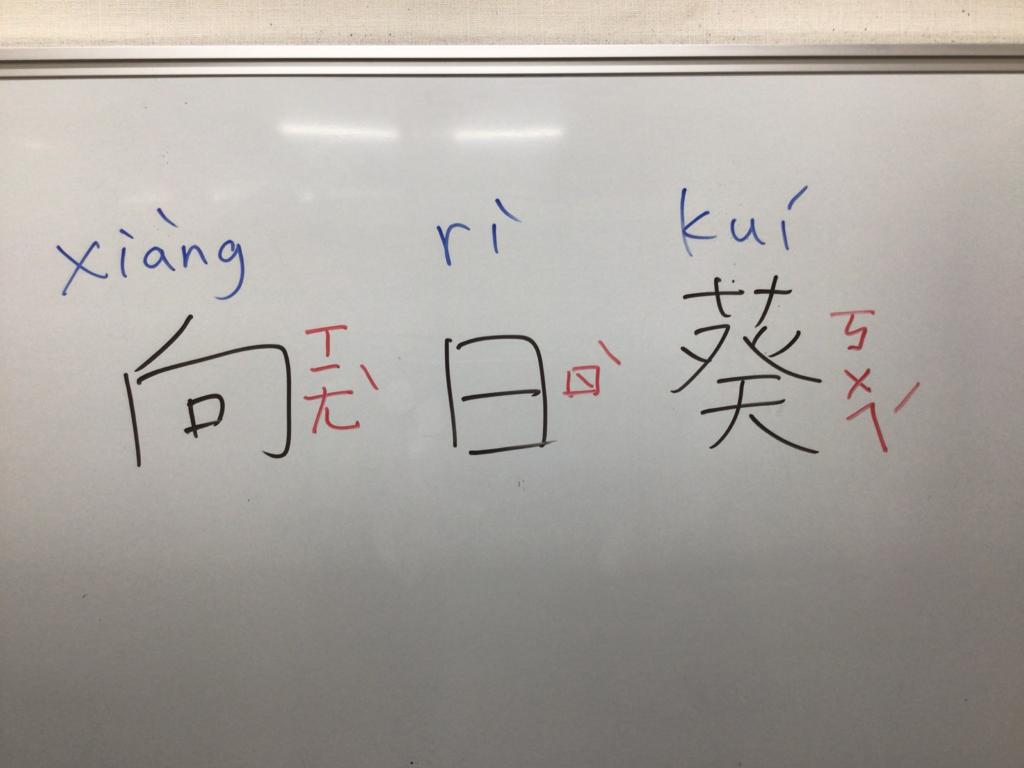 xiàng rì kuí
向 日 葵
ㄒㄧㄤˋ ㄖˋ ㄎㄨㄟˊ